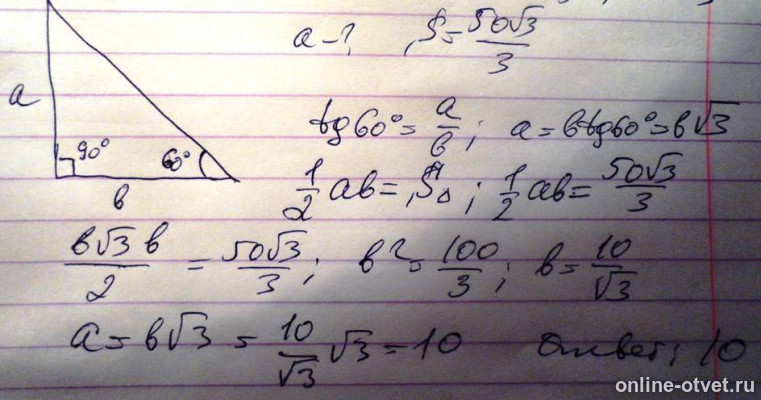 a - ?, S = 50√3/3
a
90°
60°
в
tg60° = a/в; a = в·tg60° = в√3
1/2 aв = S△; 1/2 aв = 50√3/3
в√3 в/2 = 50√3/3; в² = 100/3; в = 10/√3
a = в√3 = 10/√3 √3 = 10 Ответ: 10
online-otvet.ru